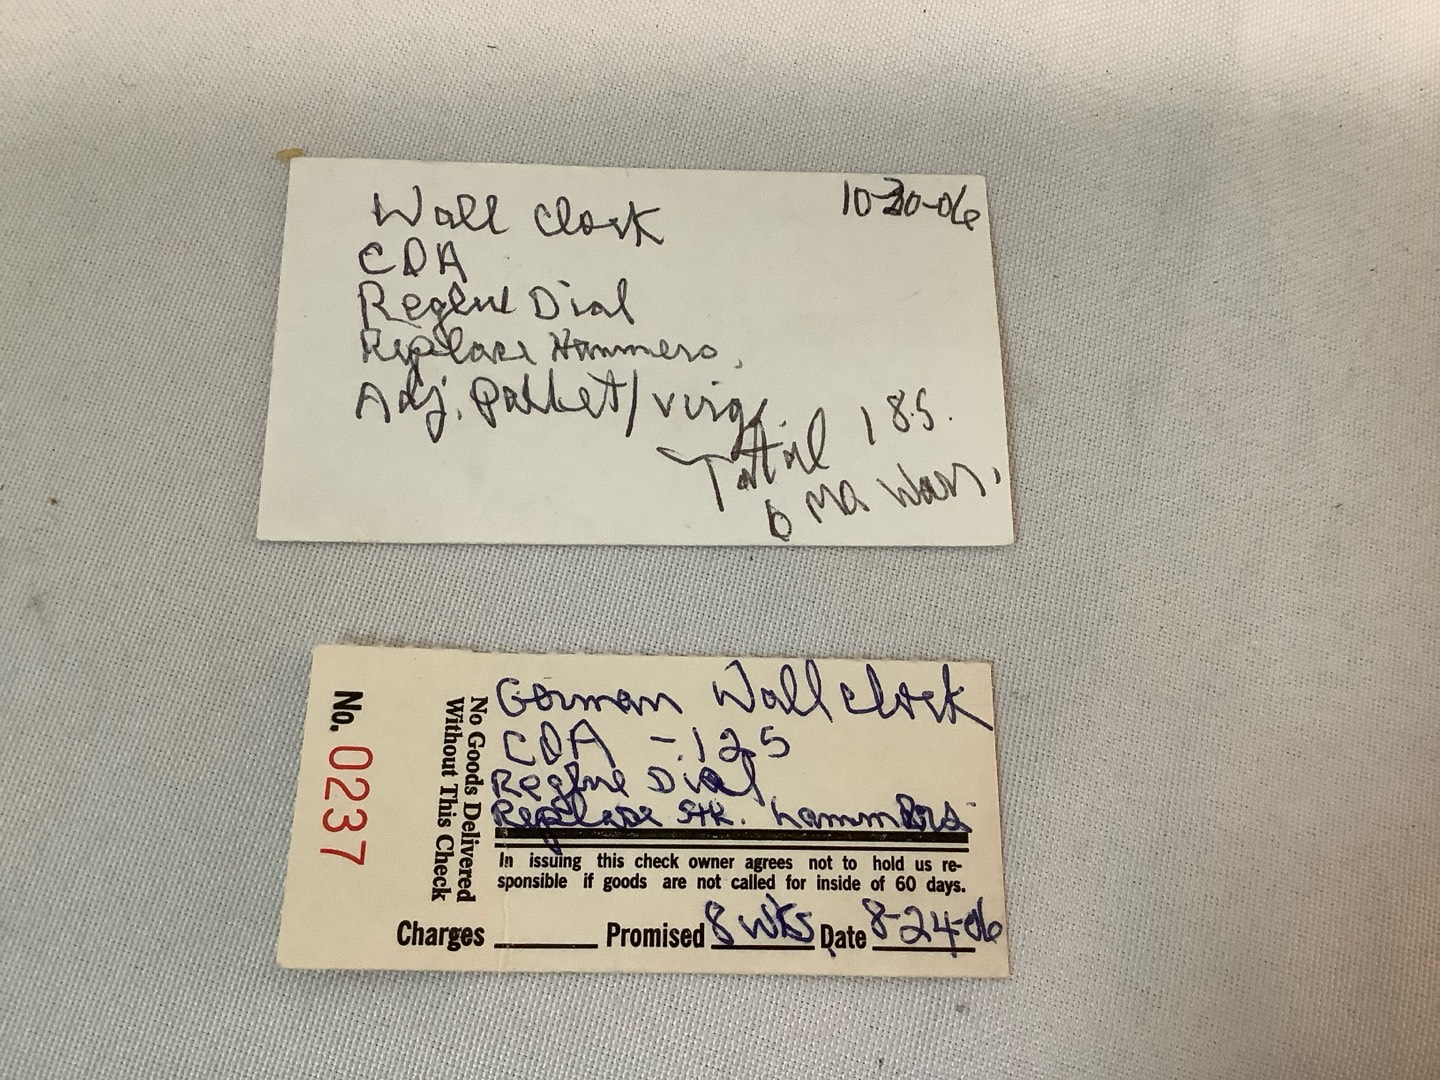 Wall Clock
10-20-06
CDA
Reglue Dial
Replace Hammers.
Adj. Pallet/verge
Total 185.
6 Mo Warr.
No. 0237
No Goods Delivered
Without This Check
German Wall clock
CDA - 125
Reglue Dial
Replace Stk. hammers
In issuing this check owner agrees not to hold us re-
sponsible if goods are not called for inside of 60 days.
Charges Promised 8 wks Date 8-24-06